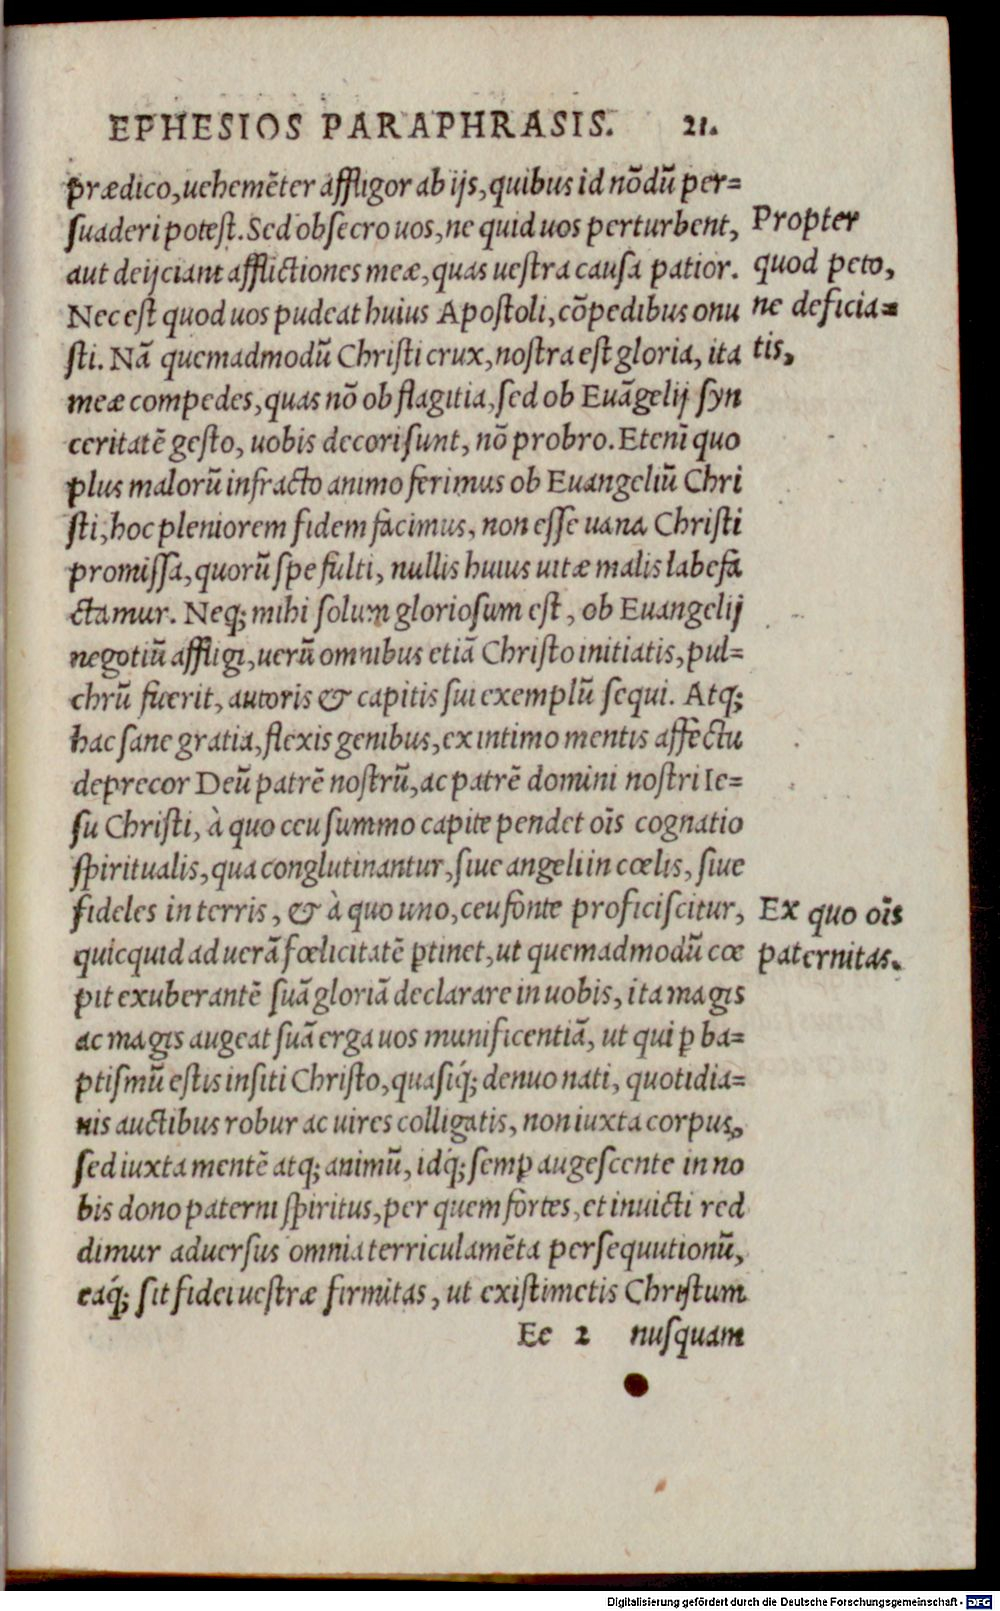 EPHESIOS PARAPHRASIS. 21.
prædico, uehemēter affligor ab ijs, quibus id nōdū per=
suaderi potest. Sed obsecro uos, ne quid uos perturbent,
aut deijciant afflictiones meæ, quas uestra causa patior.
Nec est quod uos pudeat huius Apostoli, cōpedibus onu
sti. Nā quemadmodū Christi crux, nostra est gloria, ita
meæ compedes, quas nō ob flagitia, sed ob Euāgelij syn
ceritatē gesto, uobis decori sunt, nō probro. Etenī quo
plus malorū infracto animo ferimus ob Euangeliū Chri
sti, hoc pleniorem fidem facimus, non esse uana Christi
promissa, quorū spe fulti, nullis huius uitæ malis labefa
ctamur. Neq; mihi solum gloriosum est, ob Euangelij
negotiū affligi, uerū omnibus etiā Christo initiatis, pul=
chrū fuerit, autoris & capitis sui exemplū sequi. Atq;
hac sane gratia, flexis genibus, ex intimo mentis affectu
deprecor Deū patrē nostrū, ac patrē domini nostri Ie=
su Christi, à quo ceu summo capite pendet oīs cognatio
spiritualis, qua conglutinantur, siue angeli in cœlis, siue
fideles in terris, & à quo uno, ceu fonte proficiscitur,
quicquid ad uerā fœlicitatē ꝑtinet, ut quemadmodū cœ
pit exuberantē suā gloriā declarare in uobis, ita magis
ac magis augeat suā erga uos munificentiā, ut qui ꝑ ba=
ptismū estis insiti Christo, quasiq́; denuo nati, quotidia=
nis auctibus robur ac uires colligatis, non iuxta corpus,
sed iuxta mentē atq; animū, idq́; semꝑ augescente in no
bis dono paterni spiritus, per quem fortes, et inuicti red
dimur aduersus omnia terriculamēta persequutionū,
eaq́; sit fidei uestræ firmitas, ut existimetis Christum
Ee 2 nusquam
Propter
quod peto,
ne deficia=
tis,
Ex quo oīs
paternitas.
Digitalisierung gefördert durch die Deutsche Forschungsgemeinschaft - DFG